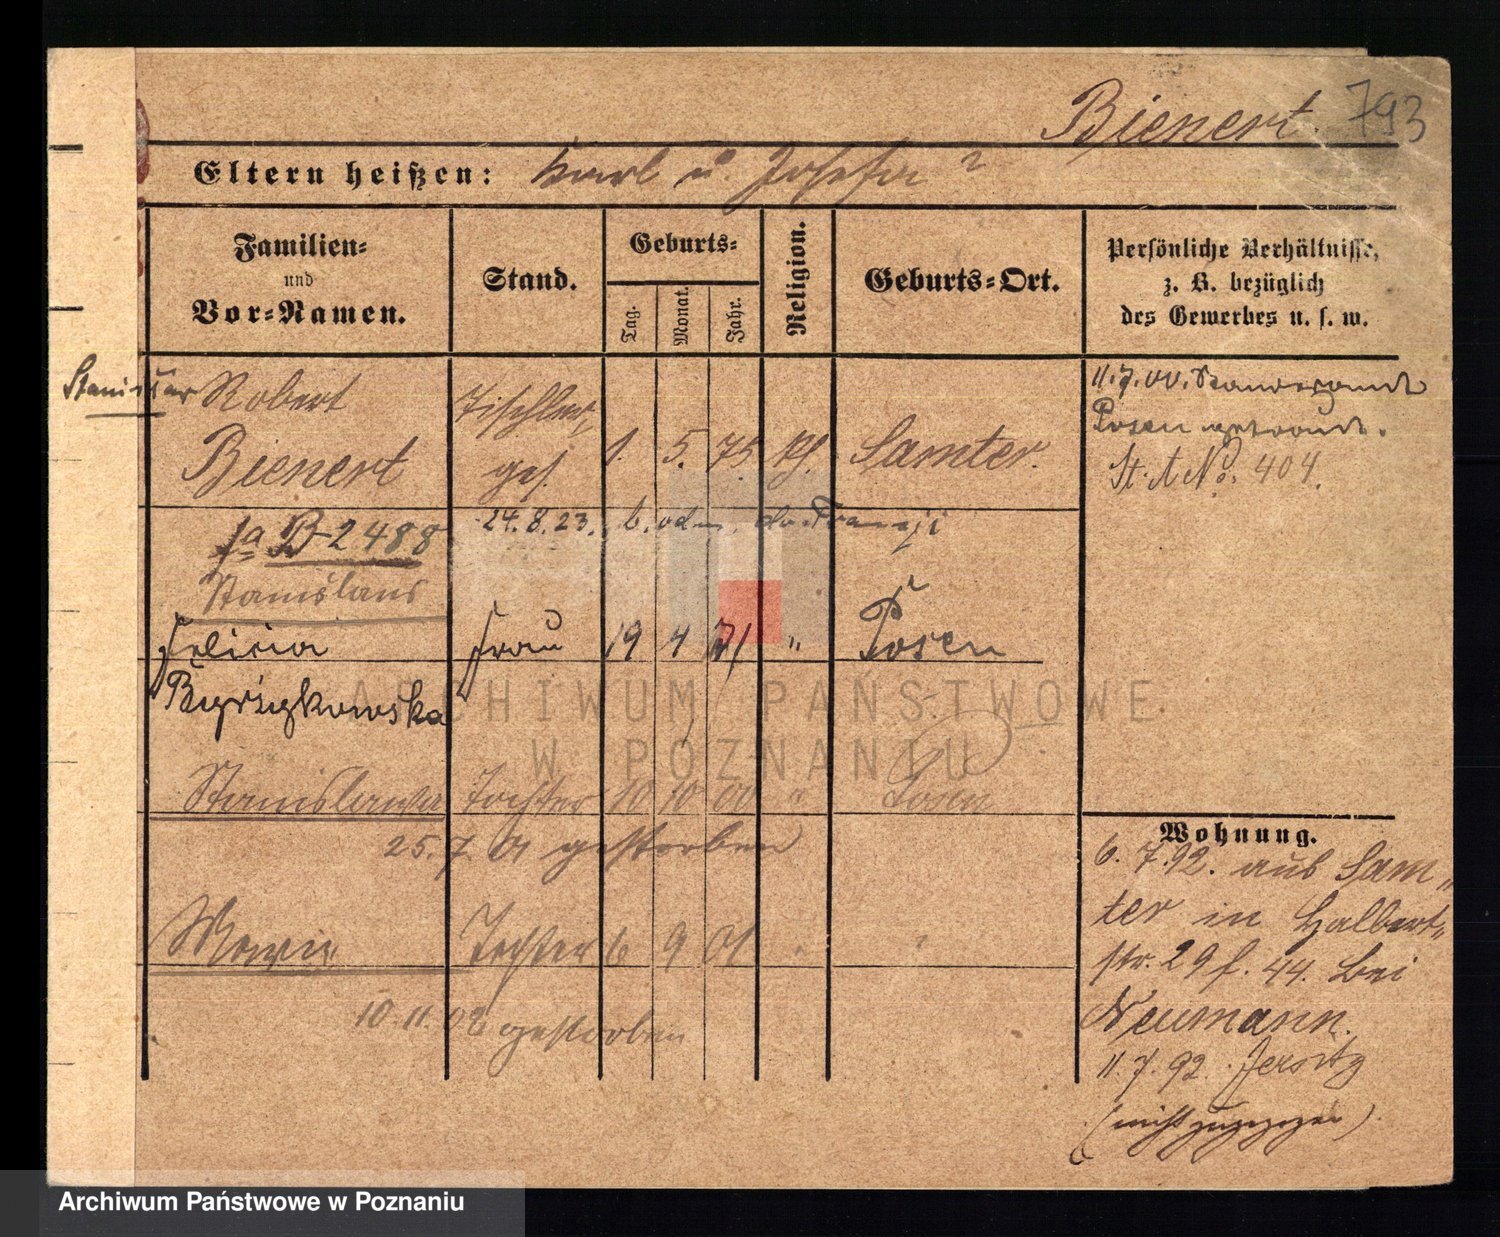 Bienert. 793
Eltern heißen: Karl u. Josefa ?
Familien- und Vor-Namen.
Stand.
Geburts-
Tag. Monat. Jahr.
Religion.
Geburts-Ort.
Persönliche Verhältnisse, z. B. bezüglich des Gewerbes u. s. w.
Robert Tischler, 11.7.00. Standesamt
Bienert ges. 1. 5. 75 kth. Samter. Posen getraut.
St. A No. 404.
B 2488 24.8.23.
Stanislaus
Felicia Frau 19 4 71 " Posen
Byrzykowska
Stanislawa Tochter 10 10 00 " Posen
25.7.01 gestorben
Marie Tochter 6 9 01 " "
10.11.02 gestorben
Wohnung.
6. 7.92. aus Sam„
ter in Halbert„
str. 29 f. 44. bei
Neumann.
11.7.92. Jersitz
(nicht zugezogen)
ARCHIWUM PAŃSTWOWE
W POZNANIU
Archiwum Państwowe w Poznaniu